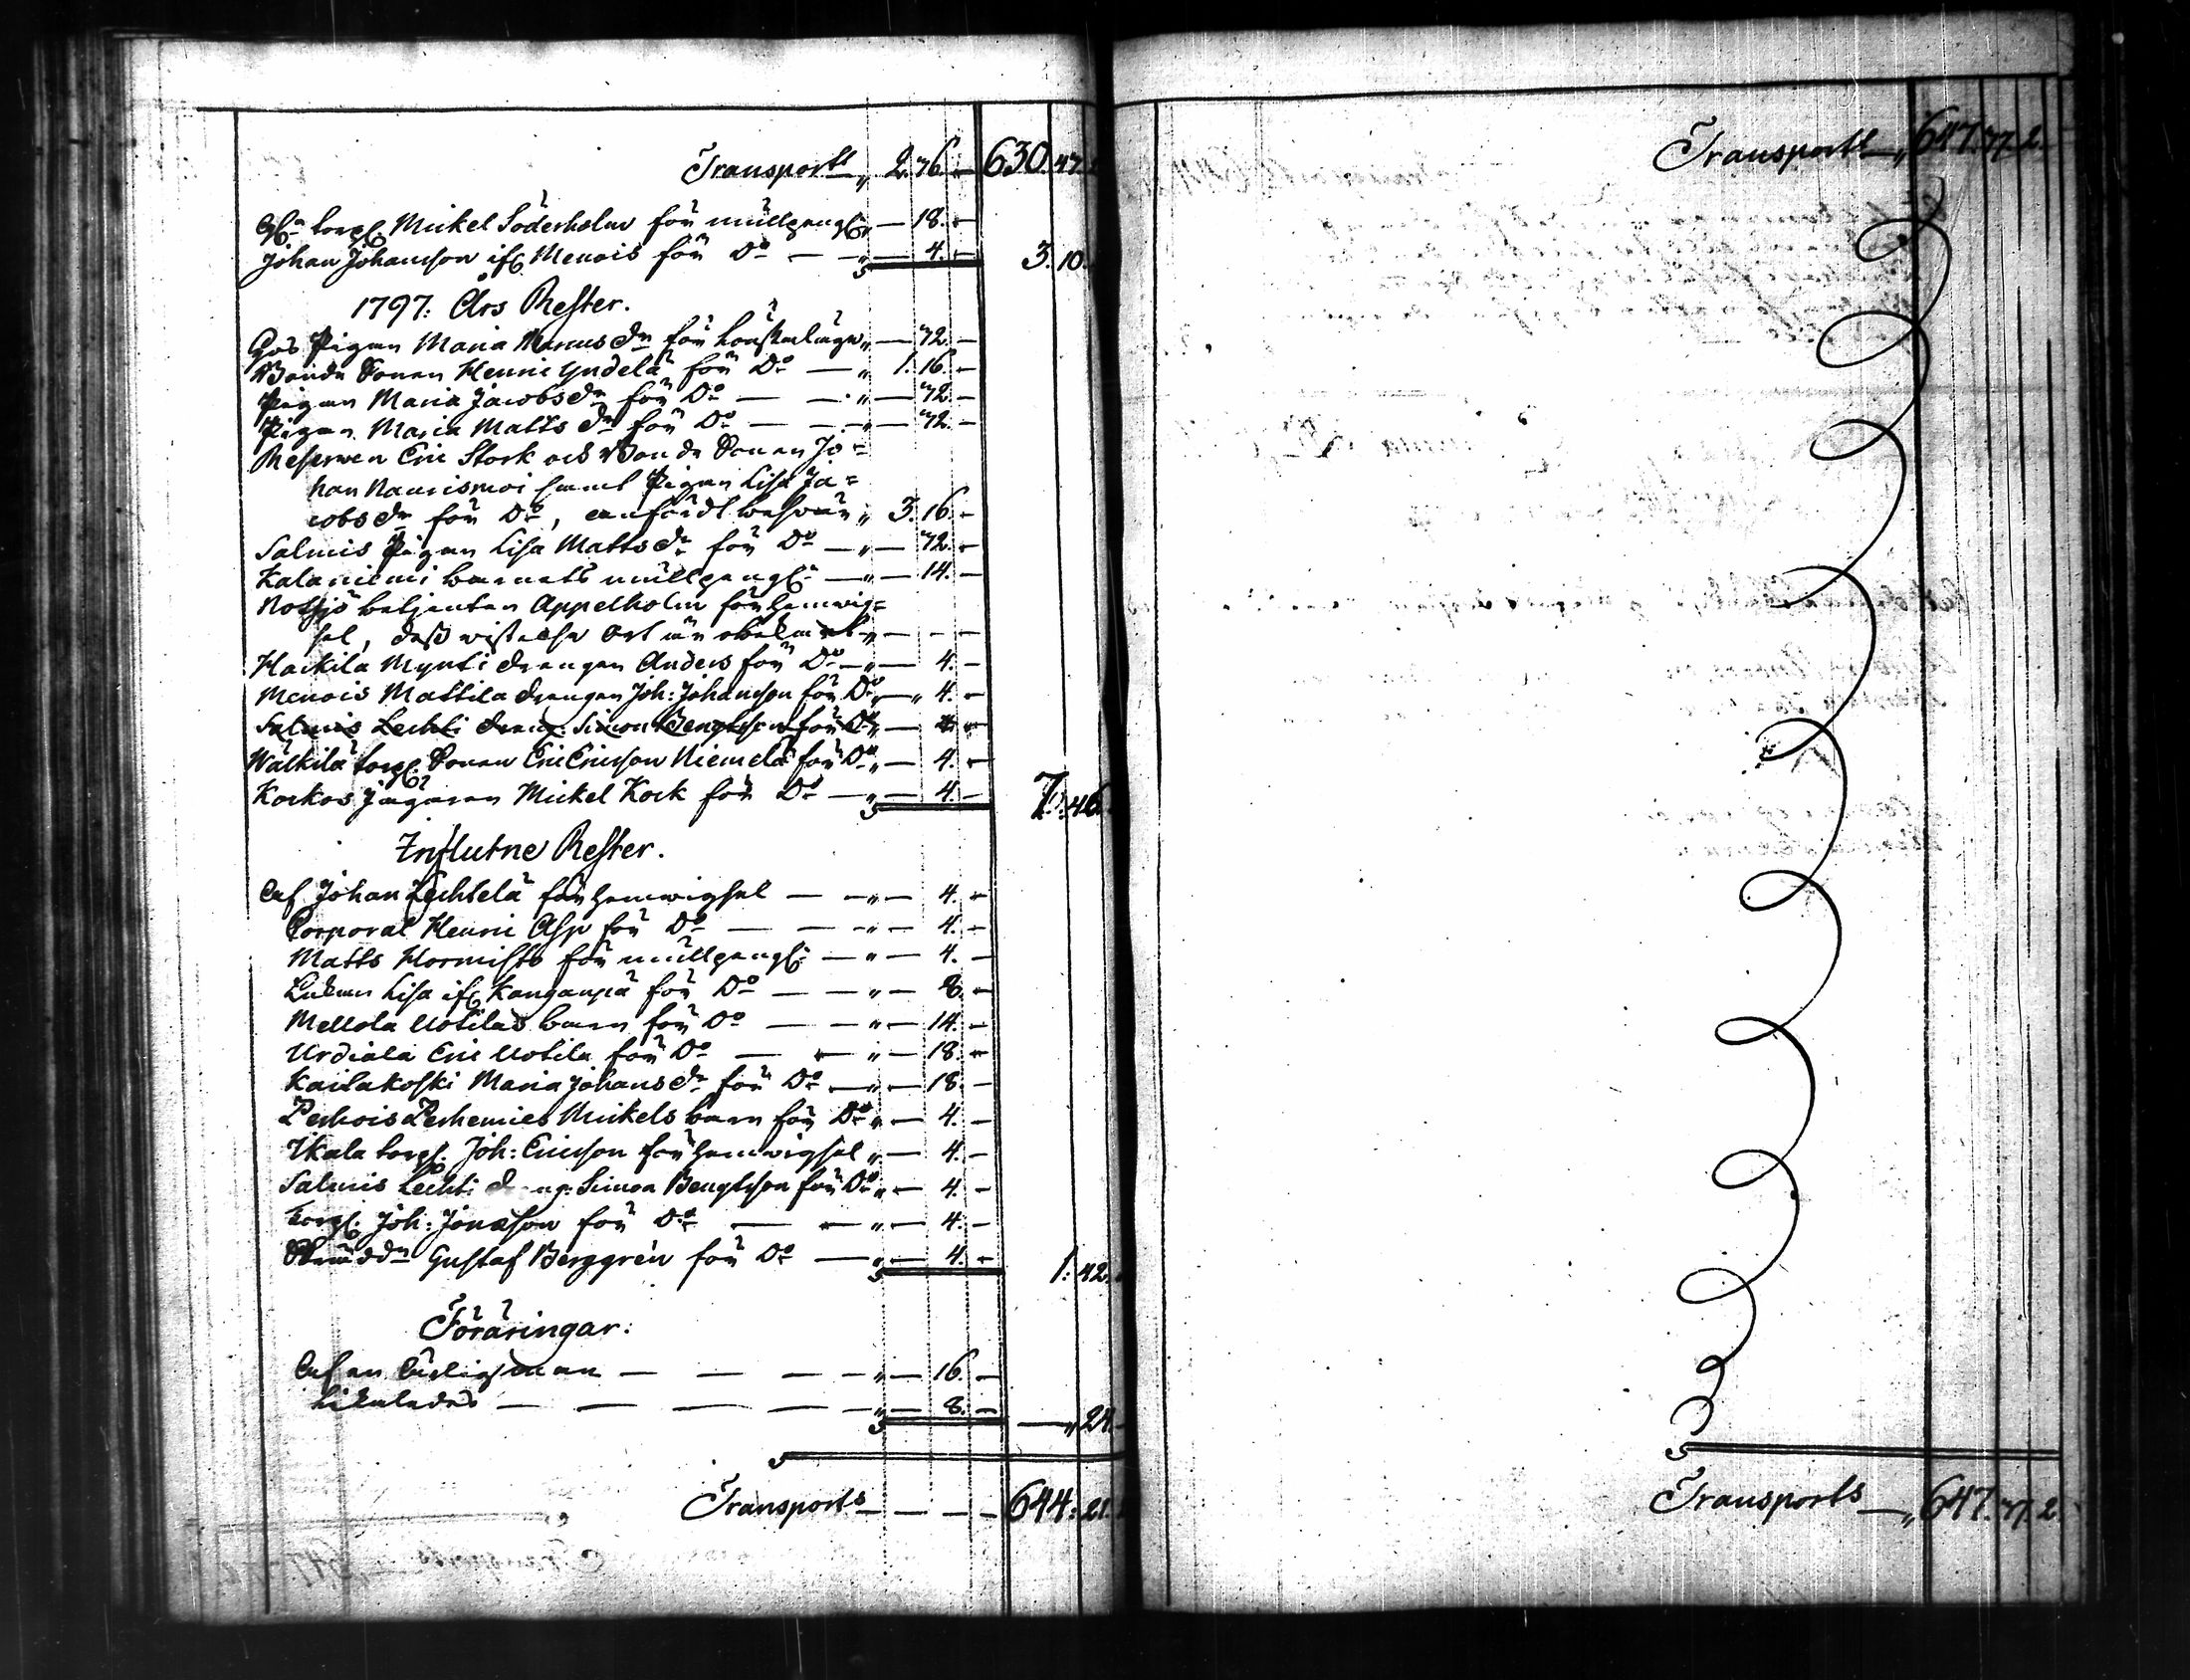 Transport „ 2. 76. — 630. 47. 2
torp. Mickel Söderholm för mullpengr „ — 18. —
Johan Johansson if. Menois för Do — „ — 4. — 3. 10.
1797: Års Rester.
Pigan Maria Marcus dr för „ — 72. —
Bonde Sonen Henric Yndelä för Do — „ 1. 16. —
Pigan Maria Jacobs dr för Do — — „ — 72 —
Pigan Maria Matts dr för Do — — „ — 72. —
Reserven Eric Stork och Bonde Sonen Jo=
han Naurismoi samt Pigan Lisa Ja=
cobs dr för Do, „ 3. 16. —
Salmis Pigan Lisa Matts dr för Do — „ — 72. —
Kalaniemi barnets mullpengr — „ — 14. —
Notsjö betjenten Appelholm för hemvig=
sel, dess vistelse Ort är obekant „ — — —
Hackila Mynti drengen Anders för Do — „ — 4. —
Menois Mattila drengen Joh: Johansson för Do „ — „ 4. —
Salmis Lechti dreng: Simon Bengtsson för Do „ — 4. —
Wälkilä torp. Sonen Eric Ericsson Niemelä för Do „ — 4. —
Korkos Mickel Kock för Do — „ — 4. — 7. 46.
Influtne Rester.
Af Johan Lechtelä för hemvigsel — — „ — 4. —
Corporal Henric Asp för Do — — — „ — 4. —
Matts för mullpengr — „ — 4. —
Enkan Lisa if. Kanganpä för Do — — „ — 8. —
Mellola Uotilas barn för Do — — „ — 14. —
Urdiala Eric Uotila för Do — — „ — 18. —
Kailakoski Maria Johans dr för Do — „ — 18. —
Perhois Perhemies Mickels barn för Do „ — 4. —
Ikala torp. Joh: Ericsson för hemvigsel „ — 4. —
Salmis Lechti dreng: Simon Bengtsson för Do „ — 4. —
torp. Joh: Jonasson för Do — — „ — 4. —
Gustaf Berggrén för Do — „ — 4. — 1. 42.
Föräringar:
Af en — — — — „ — 16. —
Likaledes — — — — — „ — 8. — — „ 24. —
Transports — — — — 644: 21.
Transport — „ 647. 77. 2.
Transports — „ 647. 77. 2.